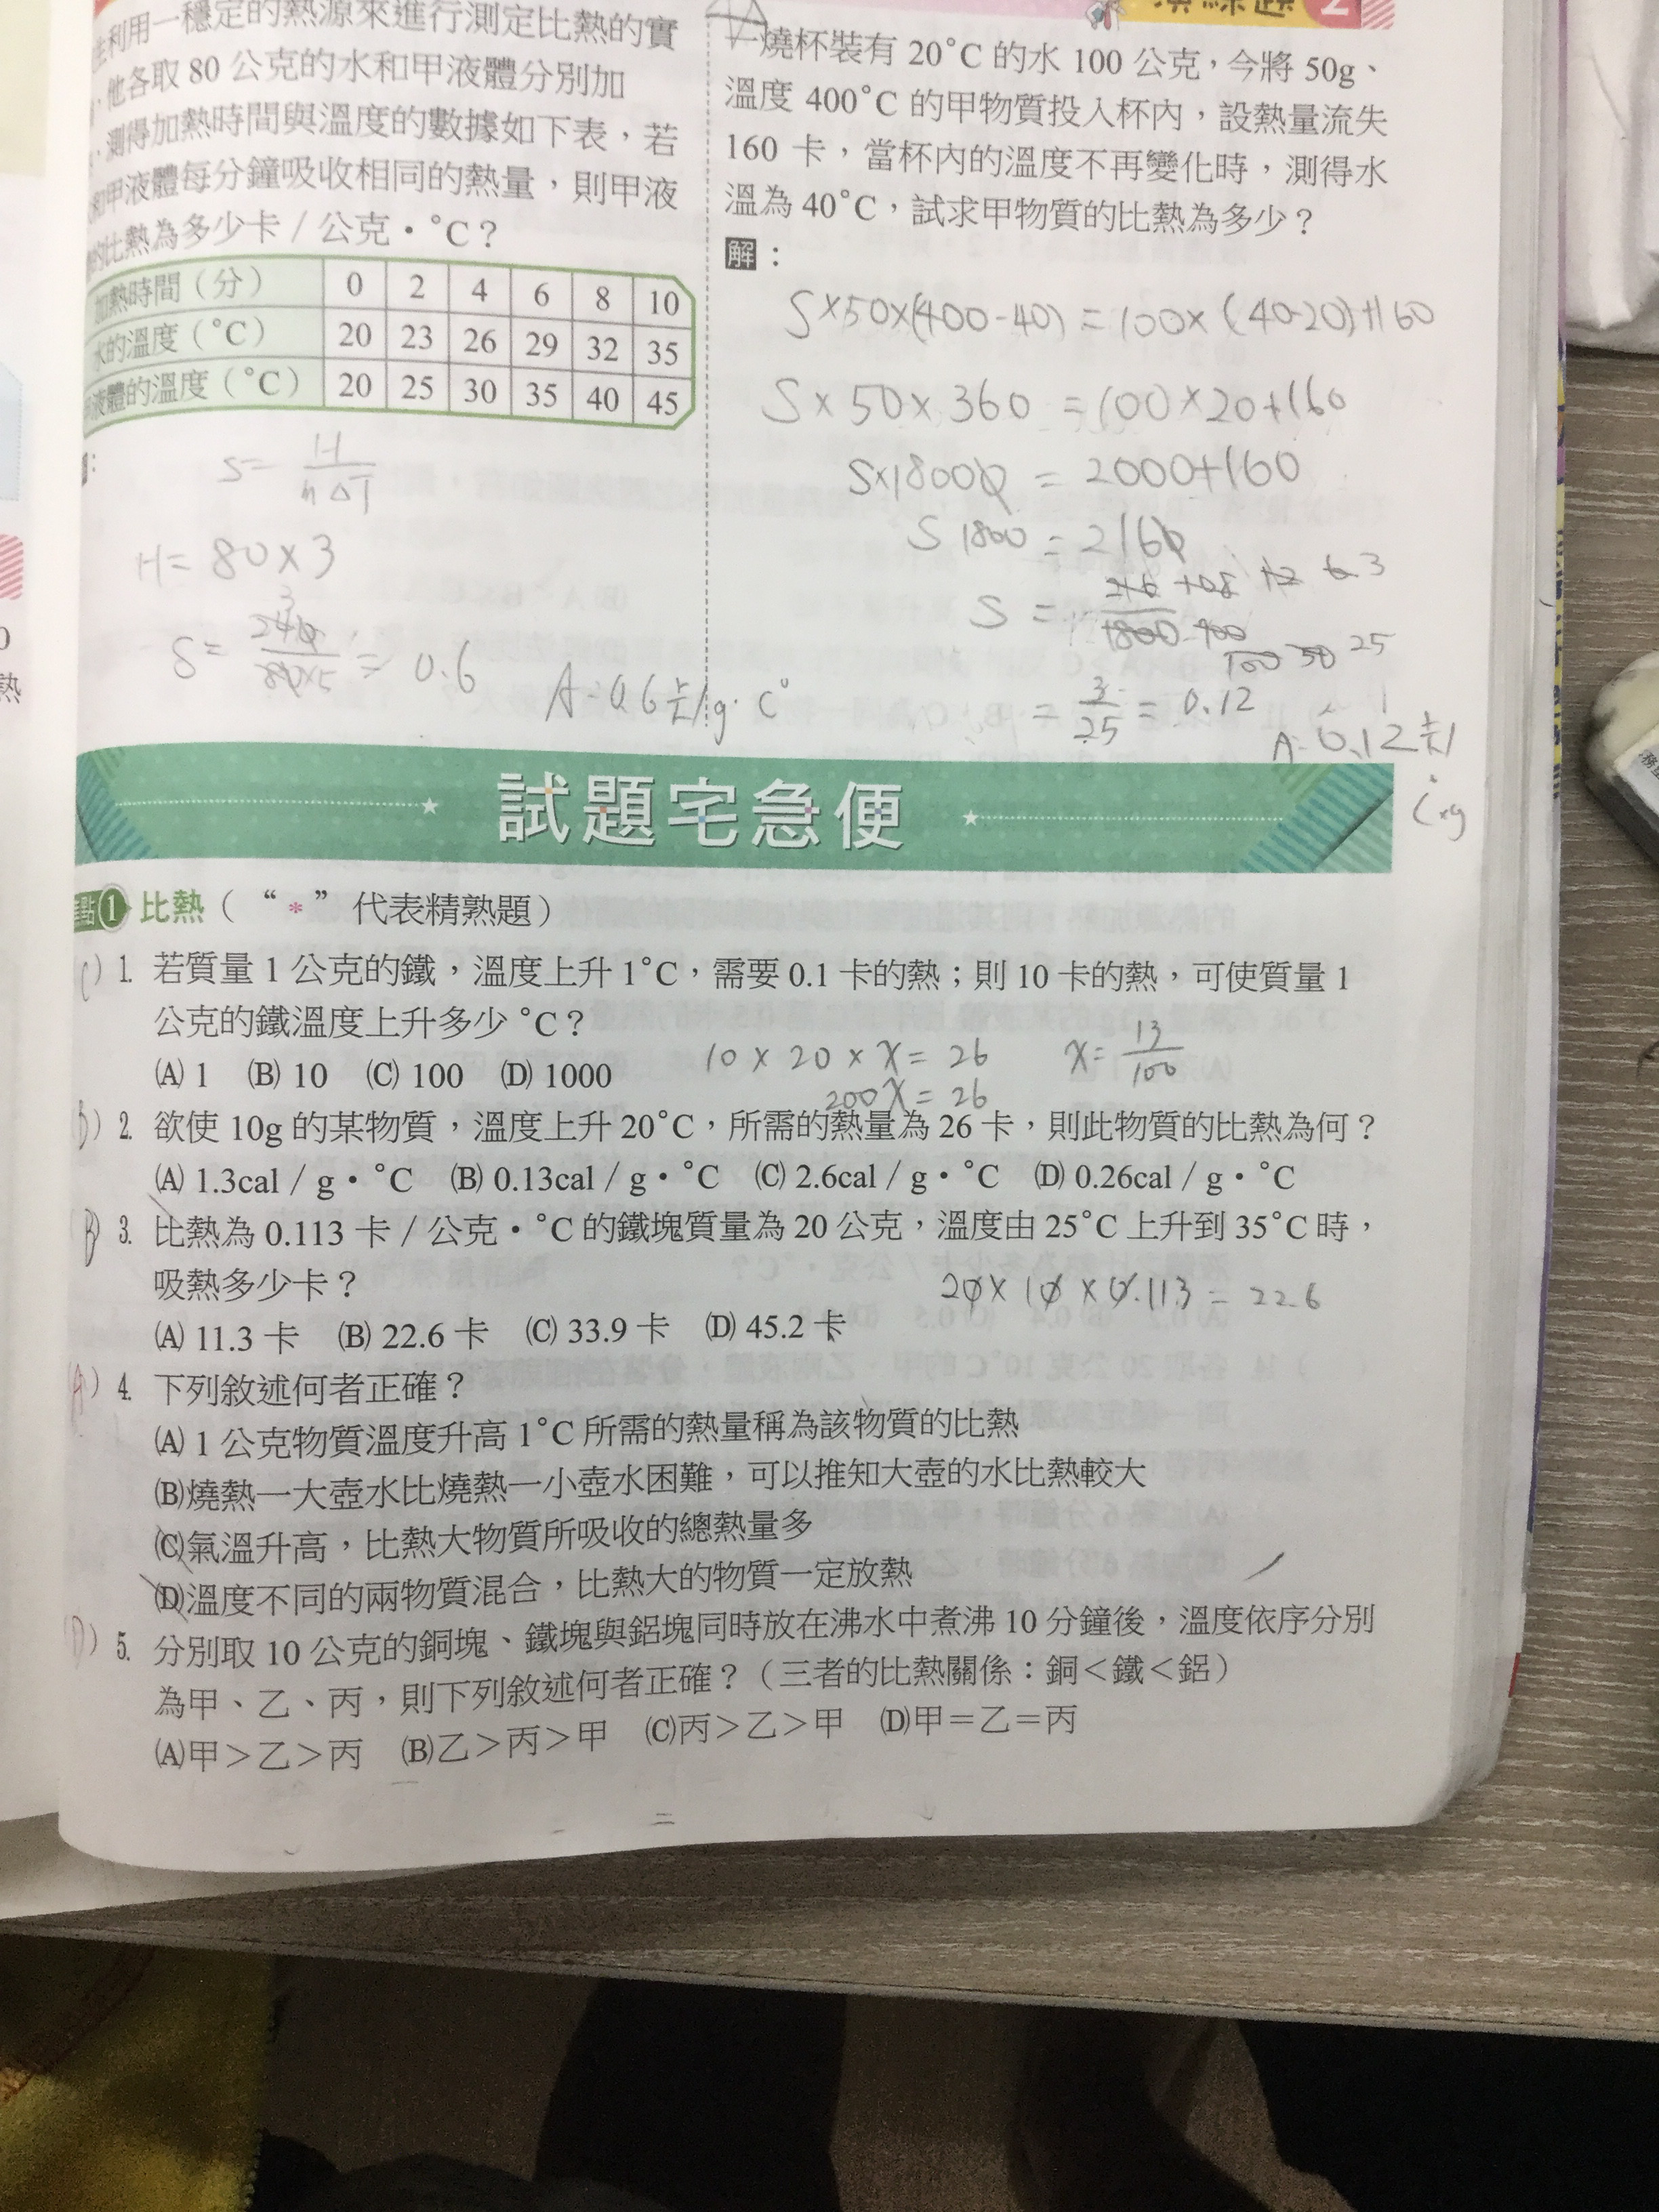 生利用一穩定的熱源來進行測定比熱的實
,他各取 80 公克的水和甲液體分別加
,測得加熱時間與溫度的數據如下表,若
和甲液體每分鐘吸收相同的熱量,則甲液
的比熱為多少卡/公克・°C?
加熱時間(分) 0 2 4 6 8 10
水的溫度(°C) 20 23 26 29 32 35
液體的溫度(°C) 20 25 30 35 40 45
S= H/m△T
H= 80×3
S= 240/80×5 = 0.6
A=0.6卡/g·C°
演練題 2
一燒杯裝有 20°C 的水 100 公克,今將 50g、
溫度 400°C 的甲物質投入杯內,設熱量流失
160 卡,當杯內的溫度不再變化時,測得水
溫為 40°C,試求甲物質的比熱為多少?
解:
S×50×(400-40)=100×(40-20)+160
S×50×360=100×20+160
S×18000=2000+160
S 1800=2160
S=
= 3/25 = 0.12
A=0.12卡/
試題宅急便
點1 比熱(“*”代表精熟題)
(C)1. 若質量 1 公克的鐵,溫度上升 1°C,需要 0.1 卡的熱;則 10 卡的熱,可使質量 1
公克的鐵溫度上升多少 °C?
10×20×X=26 X=13/100
(A) 1 (B) 10 (C) 100 (D) 1000
200X=26
)2. 欲使 10g 的某物質,溫度上升 20°C,所需的熱量為 26 卡,則此物質的比熱為何?
(A) 1.3cal/g・°C (B) 0.13cal/g・°C (C) 2.6cal/g・°C (D) 0.26cal/g・°C
(B)3. 比熱為 0.113 卡/公克・°C 的鐵塊質量為 20 公克,溫度由 25°C 上升到 35°C 時,
吸熱多少卡?
20×10×0.113=22.6
(A) 11.3 卡 (B) 22.6 卡 (C) 33.9 卡 (D) 45.2 卡
(A)4. 下列敘述何者正確?
(A) 1 公克物質溫度升高 1°C 所需的熱量稱為該物質的比熱
(B)燒熱一大壺水比燒熱一小壺水困難,可以推知大壺的水比熱較大
(C)氣溫升高,比熱大物質所吸收的總熱量多
(D)溫度不同的兩物質混合,比熱大的物質一定放熱
(D)5. 分別取 10 公克的銅塊、鐵塊與鋁塊同時放在沸水中煮沸 10 分鐘後,溫度依序分別
為甲、乙、丙,則下列敘述何者正確?(三者的比熱關係:銅<鐵<鋁)
(A)甲>乙>丙 (B)乙>丙>甲 (C)丙>乙>甲 (D)甲=乙=丙